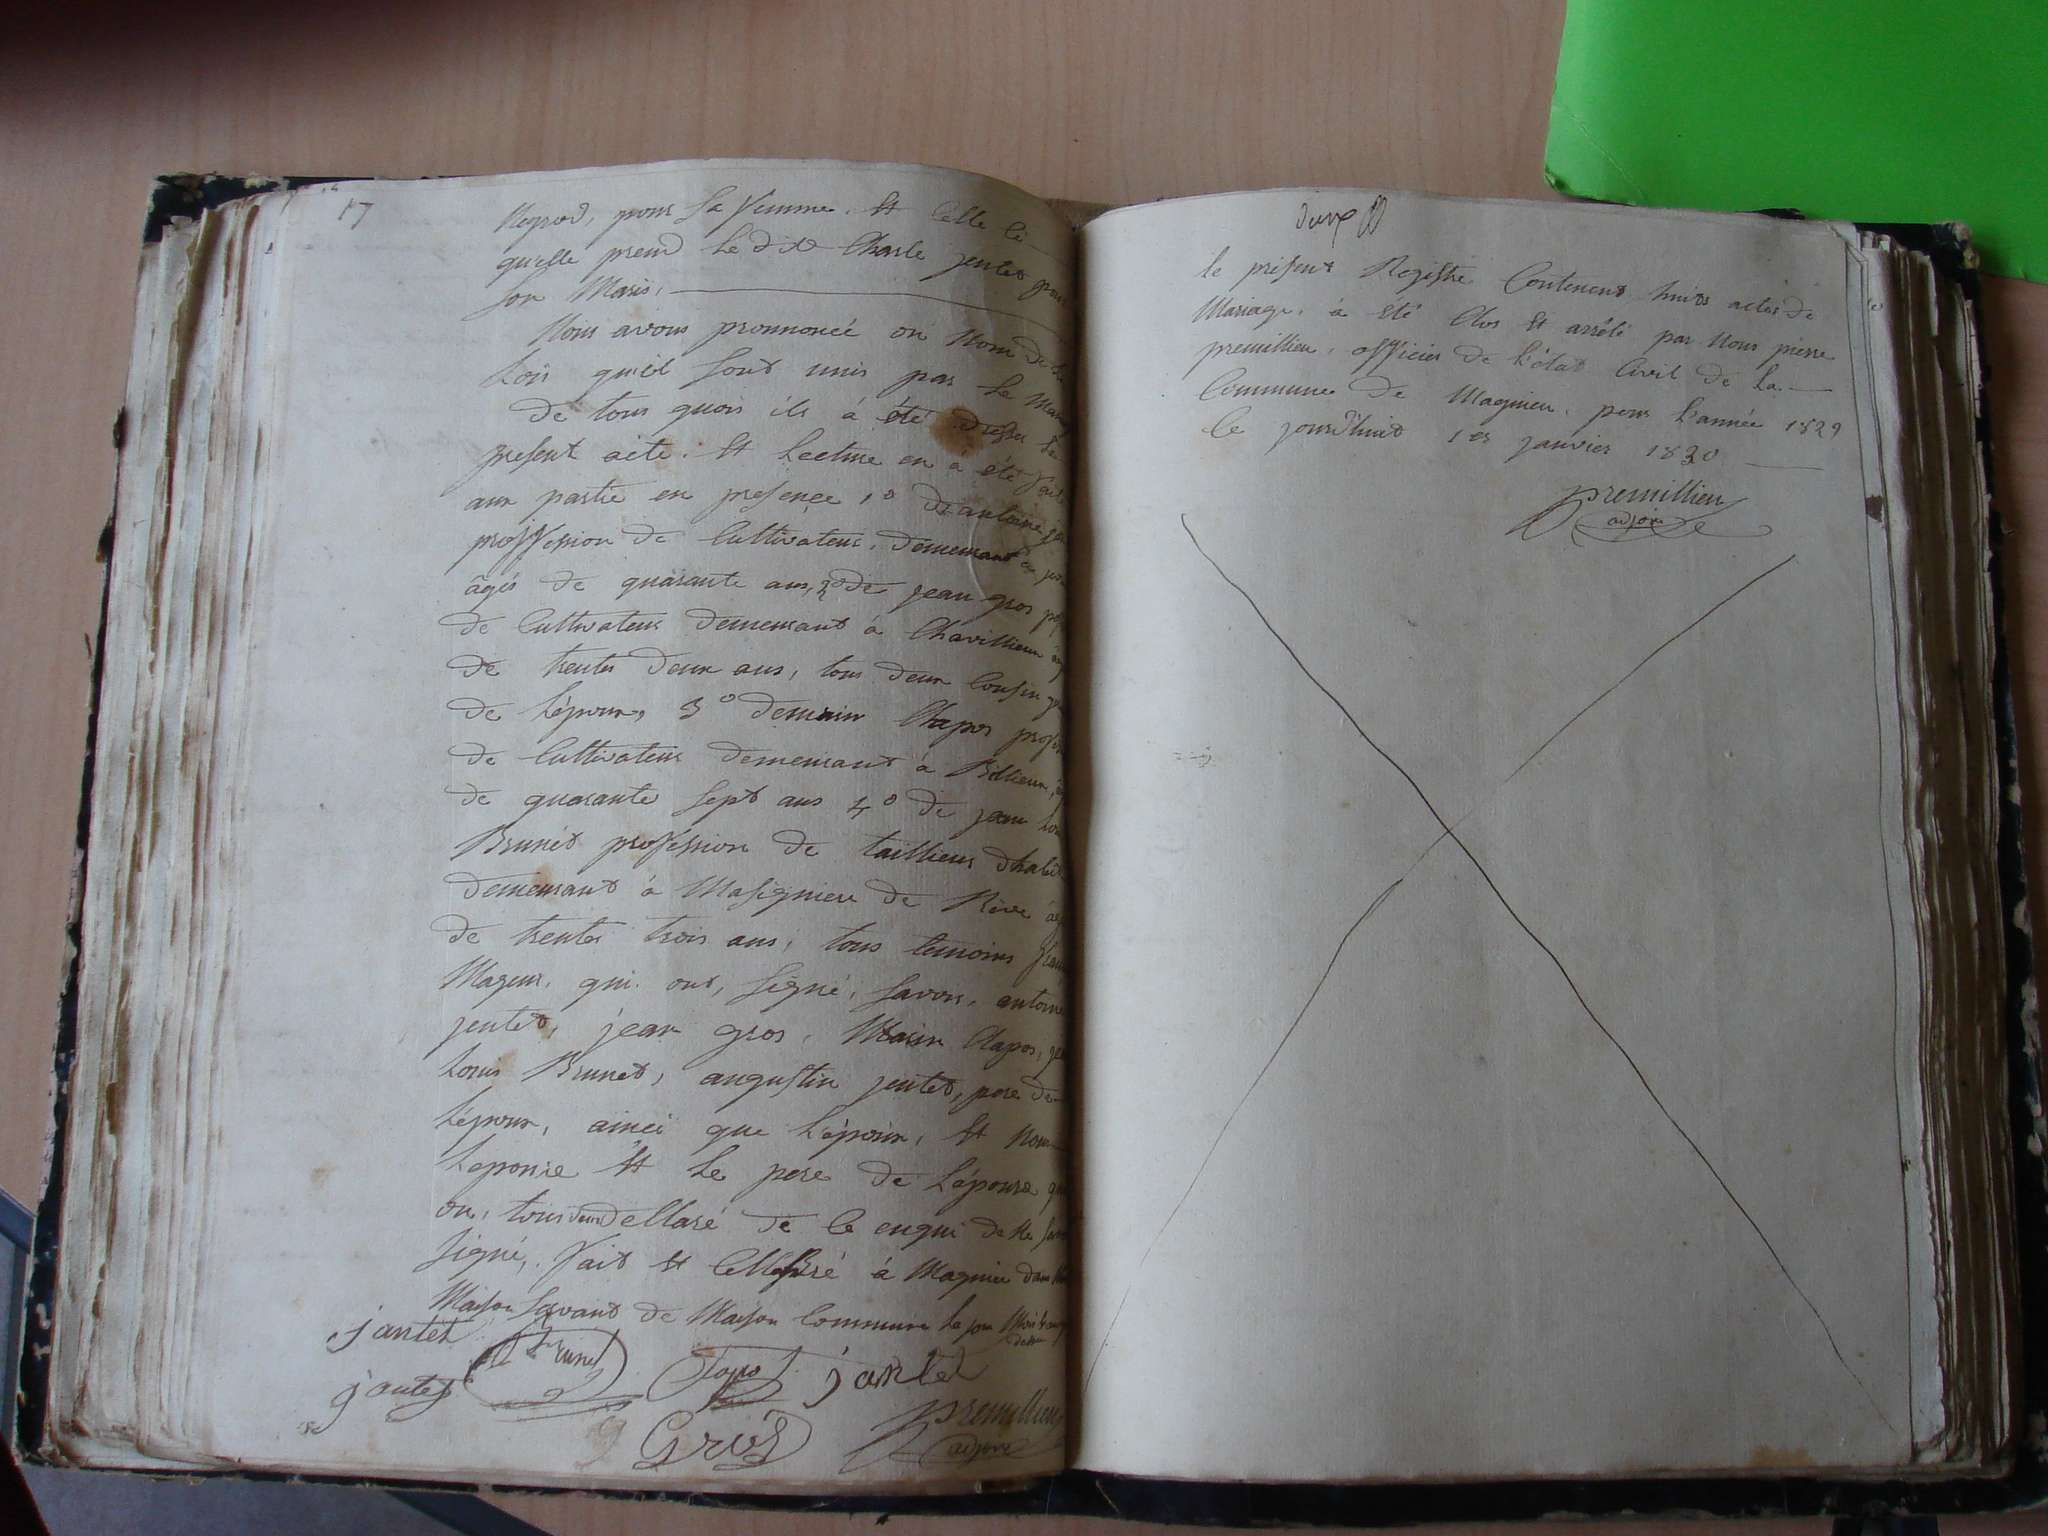 17
pour sa femme. Et celle ci
qu'elle prend le dit Charle jentet pour
son Maris.
Nous avons pronnoncé on Nom de la
Lois qu'il sont unis par le Mariage
De tous quois ils à été dressé le
present acte. Et Lecture en à été fait
aux partie en presence 1° de antoine
proffession de Cultivateur, demeurant à
âgés de quarante ans, 2° de jean gros
de Cultivateur demeurant à Chavillieux
de trentes deux ans, tous deux Cousin
de L'époux, 3° demain Chapos
de Cultivateur demeurant à Billieux,
de quarante sept ans 4° de jean Louis
Brunet proffession de taillieur d'habit
demeurant à Masignieu de Rive
de trentes trois ans, tous temoins
Majeur, qui ont, signé, savoir, antoine
jentet, jean gros, Marin Chapos, jean
Louis Brunet, augustin jentet, pere de
L'époux, ainci que L'époux, Et Nous
L'epouse Et Le pere de L'épouse qui
on, tous deux dellaré de ce enqui de ne savoir
signé, fait Et Cellebré à Magnieu dans
Maison servant de Maison Commune les jour Mois
dessus
jantet
Brunet
Chapos
jantet
jantet
Gros
premillieu
adjoint
deux
le présent Registre Contenent huits actes de
Mariage, à été Clos Et arrêté par Nous pierre
premillieu, officier de L'état Civil de la
Commune de Magnieu, pour L'année 1829
Ce jourd'huit 1er janvier 1830
premillieu
adjoint